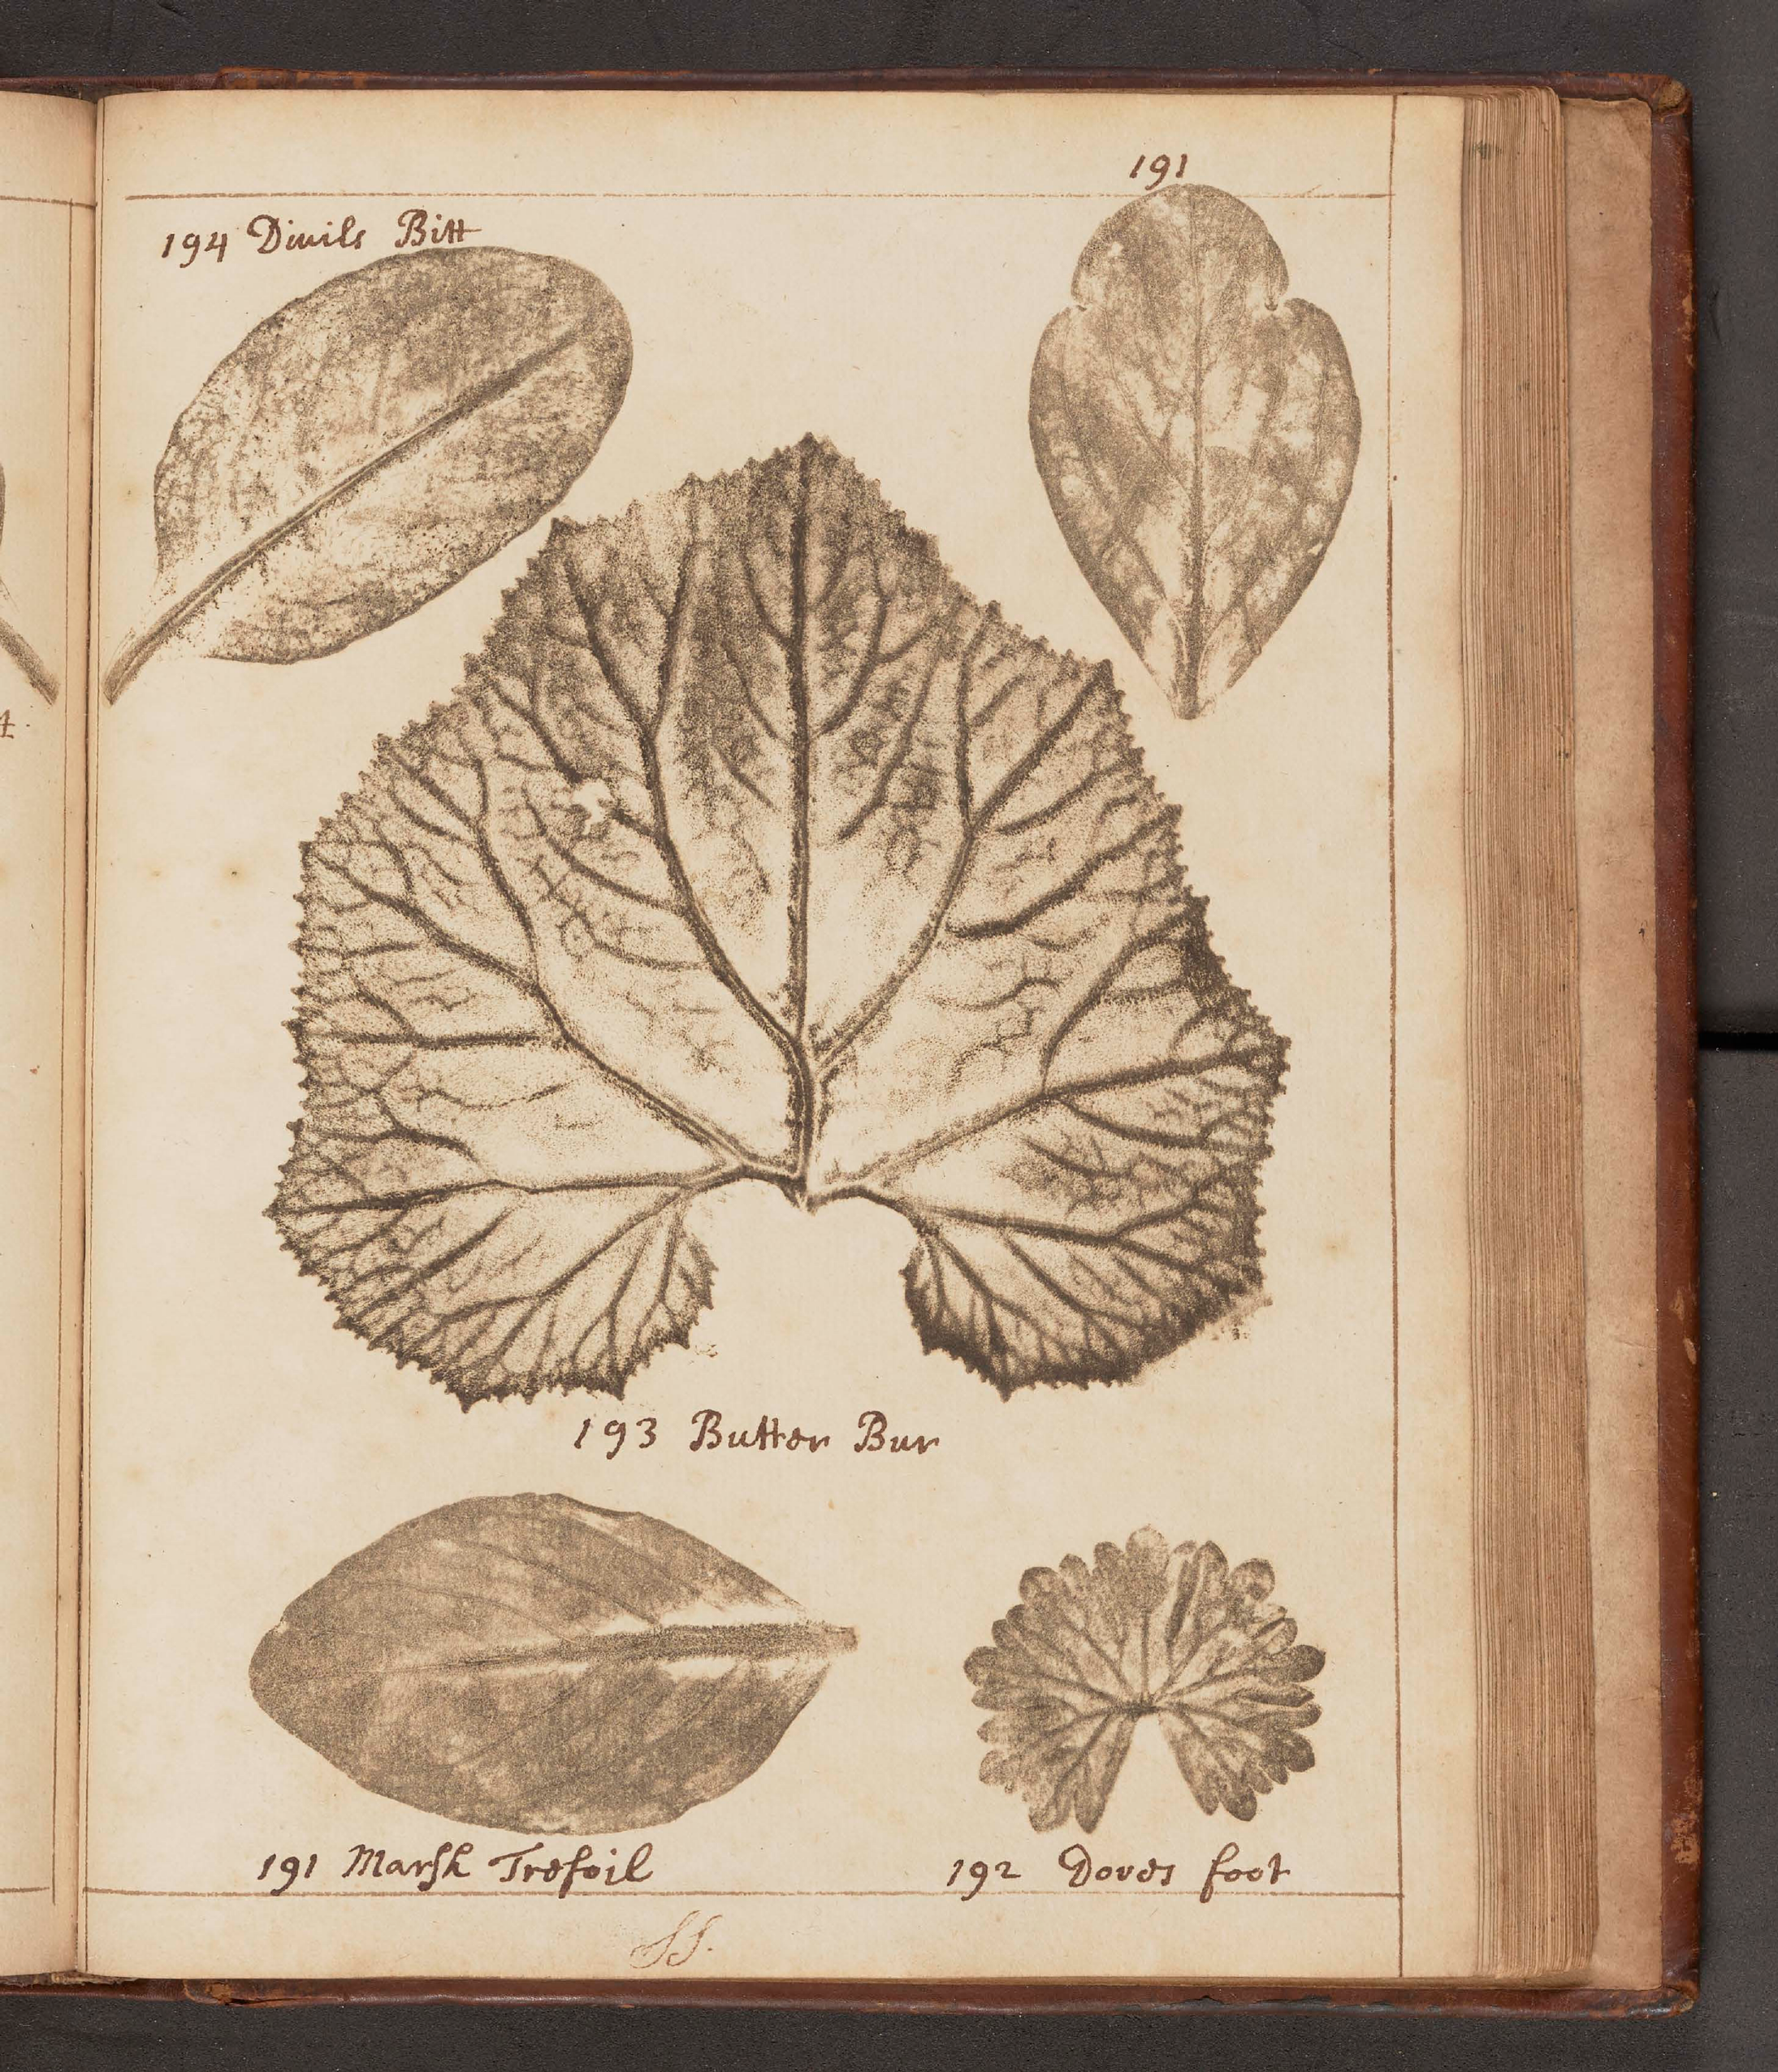 191
194 Divils Bitt
193 Butter Bur
191 Marsh Trefoil
192 Doves foot